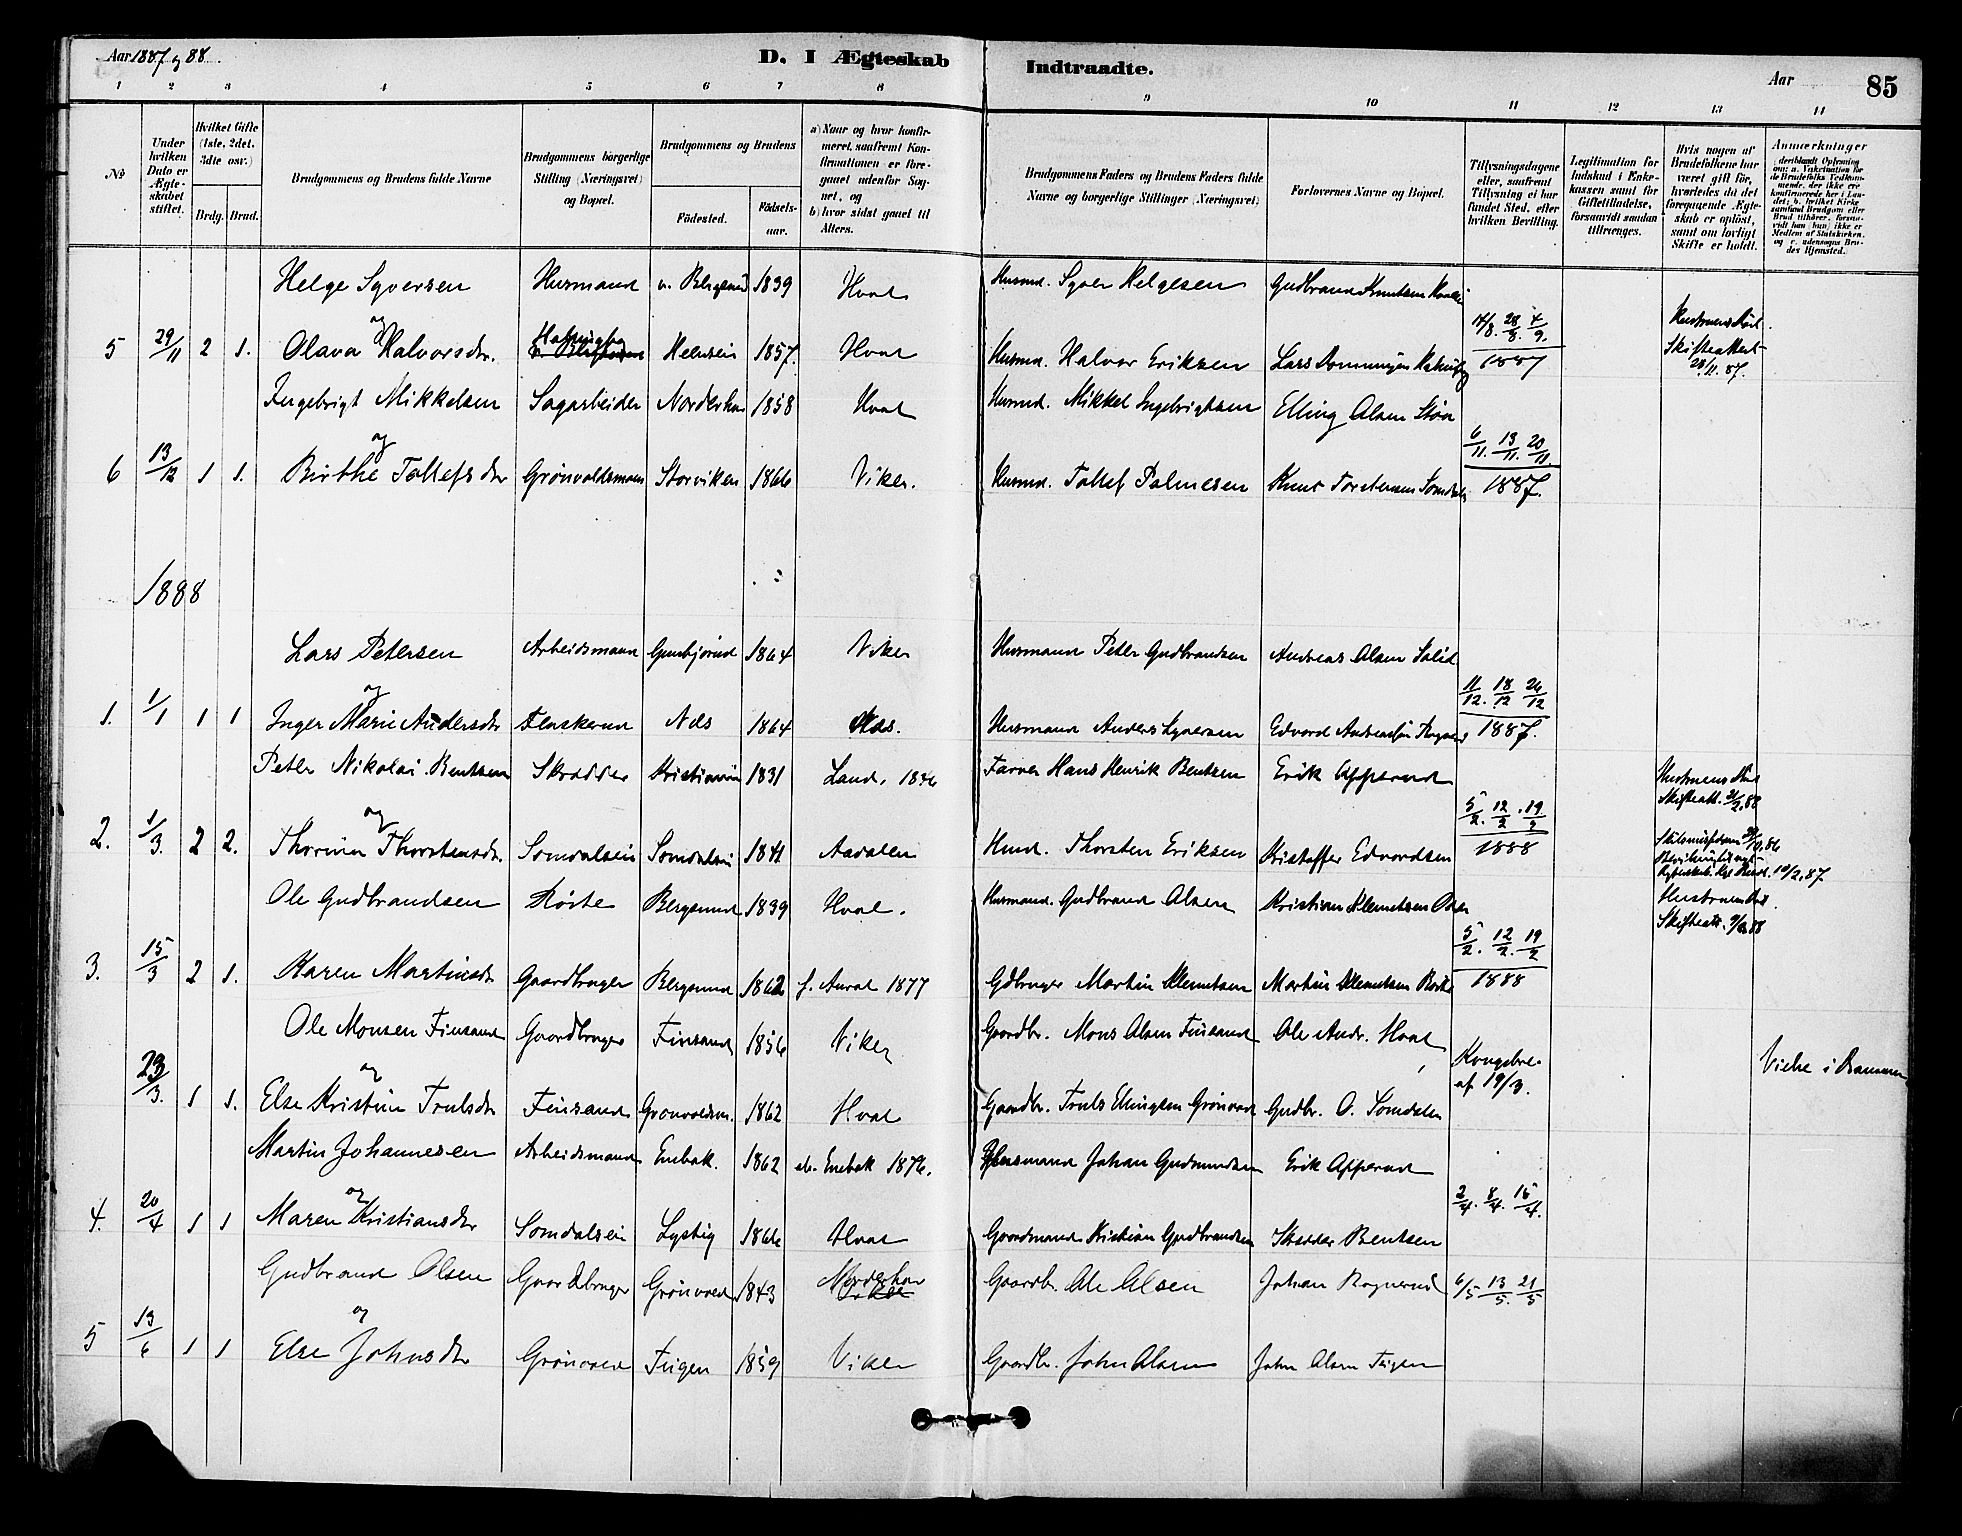 Aar 1887 og 88.
D. I Ægteskab Indtraadte.
Aar
85
1 2 3 4 5 6 7 8 9 10 11 12 13 14
No
Under hvilken Dato er Ægteskabet stiftet.
Hvilket Gifte (1ste, 2det, 3die osv.)
Brdg. Brud.
Brudgommens og Brudens fulde Navne
Brudgommens borgerlige Stilling (Næringsvei) og Bopæl.
Brudgommens og Brudens
Fødested. Fødsels-aar.
a) Naar og hvor konfirmeret, saafremt Konfirmationen er foregaaet udenfor Sognet, og
b) hvor sidst gaaet til Alters.
Brudgommens Faders og Brudens Faders fulde Navne og borgerlige Stillinger (Næringsvei)
Forlovernes Navne og Bopæl.
Tillysningsdagene eller, saafremt Tillysning ei har fundet Sted, efter hvilken Bevilling.
Legitimation for Indskud i Enkekassen samt for Giftetilladelse, forsaavidt saadan tiltrænges.
Hvis nogen af Brudefolkene har været gift før, hvorledes da det foregaaende Ægteskab er opløst, samt om lovligt Skifte er holdt.
Anmærkninger
Helge Syversen Husmand v. Bergsund 1839 Hval Husmd. Syver Helgesen Gudbrand Knutsen
og
5 29/11 2 1. Olava Halvorsdr. 1857. Hval Husmd. Halvor Eriksen Lars 14/8. 28/8. 4/9. 1887 Hustruens Død. Skifteattest 28/11. 87.
Ingebrigt Mikkelsen Sagarbeider Norderhov 1858 Hval Husmd. Mikkel Ingebrigtsen Elling Olsen Støa
og
6 13/12 1 1. Birthe Tollefsdr Grønvoldsmoen Storviken 1866 Viker. Husmd. Tollef Palmesen Knut Torstensen Somdalen 6/11. 13/11. 20/11. 1887.
1888
Lars Petersen Arbeidsmand Gunbjørud 1864 Viker Husmand Peter Gudbrandsen Andreas Olsen
og
1. 1/1 1 1 Inger Marie Andersdr Flaskerud Næs 1864 Næs. Husmand Anders Syversen Edvard 11/12. 18/12 26/12 1887.
Peter Nikolai Bentsen Skrædder Kristiania 1831 Land. 1846 Farver Hans Henrik Bentsen Erik Opperud Hustruens Død Skifteatt. 21/2.88
og
2. 1/3. 2 2. Thorina Thorstensdr. Somdalseie Somdalseie 1841 Aadalen Husmd. Thorsten Eriksen Kristoffer Edvardsen 5/2. 12/2. 19/2 1888
Ole Gudbrandsen Røste Bergsund 1839 Hval. Husmand. Gudbrand Olsen Kristian Klemetsen Hustruens Død. Skifteatt. 9/2 88
3. 15/3 2 1. Karen Martinsdr Gaardbruger Bergsund 1862 f. Aural 1877 Gdbruger Martin Klemetsen Martin Klemetsen 5/2. 12/2. 19/2 1888
Ole Monsen Finsand Gaardbruger Finsand 1856 Viker Gaardbr. Mons Olsen Finsand Ole Andr. Hval
og
23/3. 1 1. Else Kristine Trulsdr Finsand Grønvoldsm. 1862 Hval Gaardbr. Truls Ellingsen Grønvold Gudbr. O. Somdalen Kongebrev af 19/3. Viede i Drammen
Martin Johannesen Arbeidsmand Enebak. 1862 Enebak 1876. Husmand Johan Gudmundsen Erik Opperud
og
4. 20/4 1 1 Maren Kristiansdr Somdalseie Lystig 1866 Hval Gaardmand Kristian Gudbrandsen Skrædder Bentsen 2/4. 8/4. 15/4.
Gudbrand Olsen Gaardbruger Grønvold 1843 Norderhov Gaardbr. Ole Olsen Johan Rognerud 6/5 13/5. 21/5
og
5 13/6 1 1 Else Johnsdr Grønvold Tingen 1859 Viker Gaardbr. John Olsen John Olsen Tingen